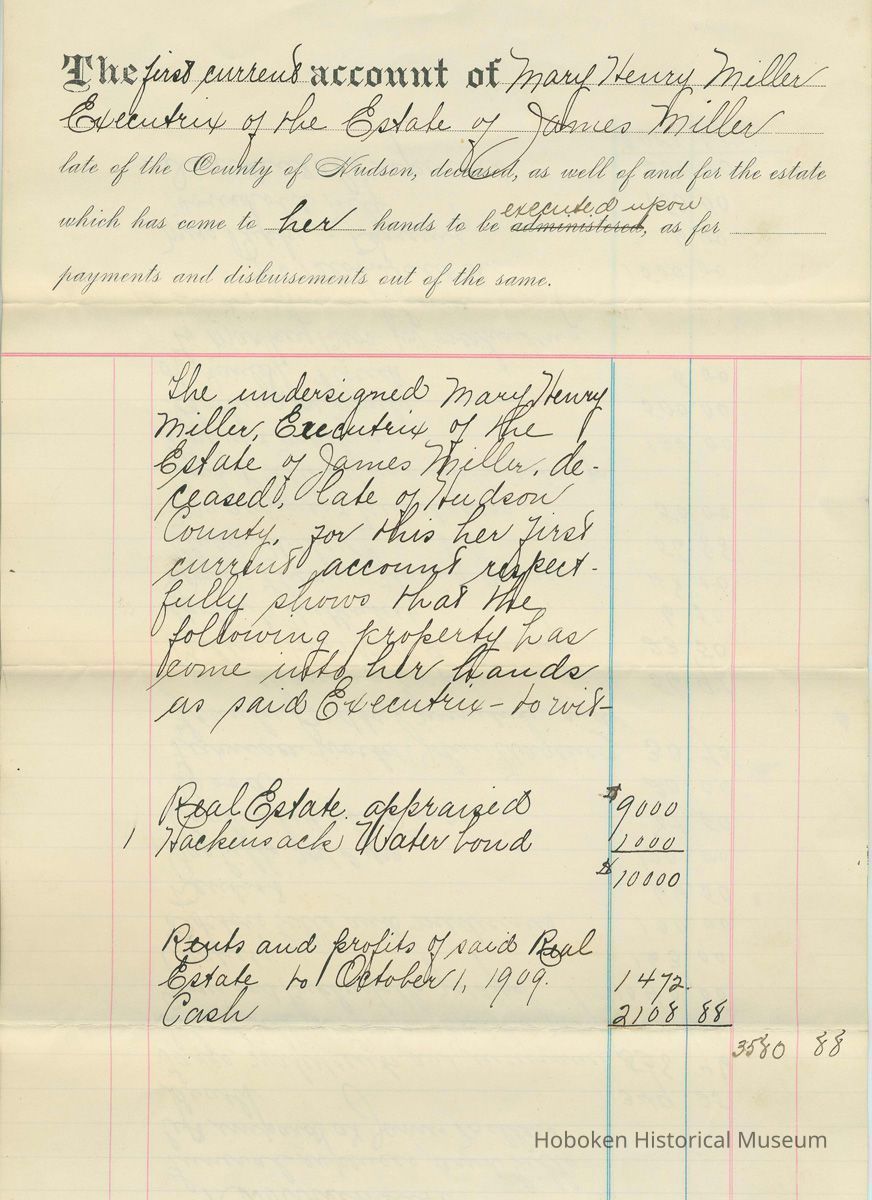 The first current account of Mary Henry Miller
Executrix of the Estate of James Miller
late of the County of Hudson, deceased, as well of and for the estate
executed upon
which has come to her hands to be administered, as for
payments and disbursements out of the same.
The undersigned Mary Henry
Miller, Executrix of the
Estate of James Miller, de-
ceased, late of Hudson
County, for this her first
current account respect-
fully shows that the
following property has
come into her hands
as said Executrix - to wit -
Real Estate appraised $9000
1 Hackensack Water bond 1000
$10000
Rents and profits of said Real
Estate to October 1, 1909. 1472.
Cash 2108 88
3580 88
Hoboken Historical Museum